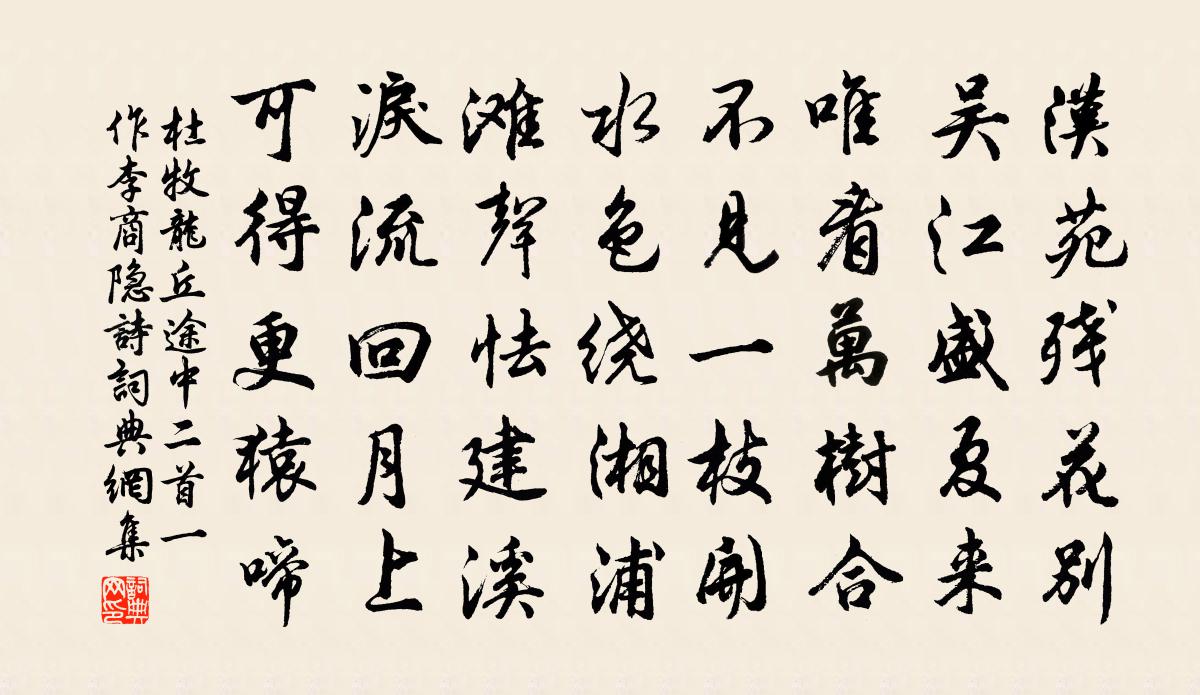 漢苑残花別
吴江盛夏来
唯看萬樹合
不見一枝開
水色绕湘浦
滩聲怯建溪
淚流回月上
可得更猿啼
杜牧龍丘途中二首一
作李商隐詩詞典網集